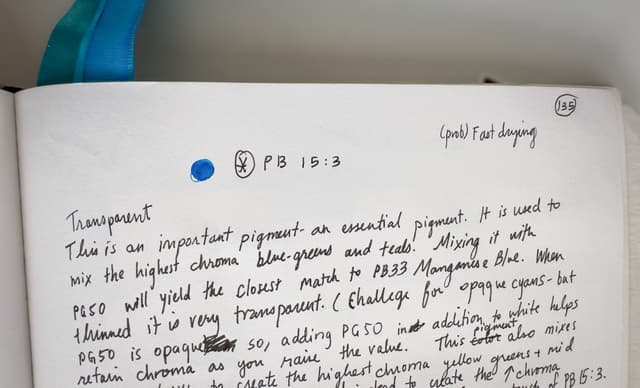 135
(prob) Fast drying
PB 15:3
Transparent
This is an important pigment - an essential pigment. It is used to
mix the highest chroma blue-greens and teals. Mixing it with
PG50 will yield the closest match to PB33 Manganese Blue. When
thinned it is very transparent. (Challege for opaque cyans - but
PG50 is opaque so, adding PG50 in addition to white helps
retain chroma as you raise the value. This pigment also mixes
create the highest chroma yellow greens + mid
to create the ↑ chroma
of PB 15:3.